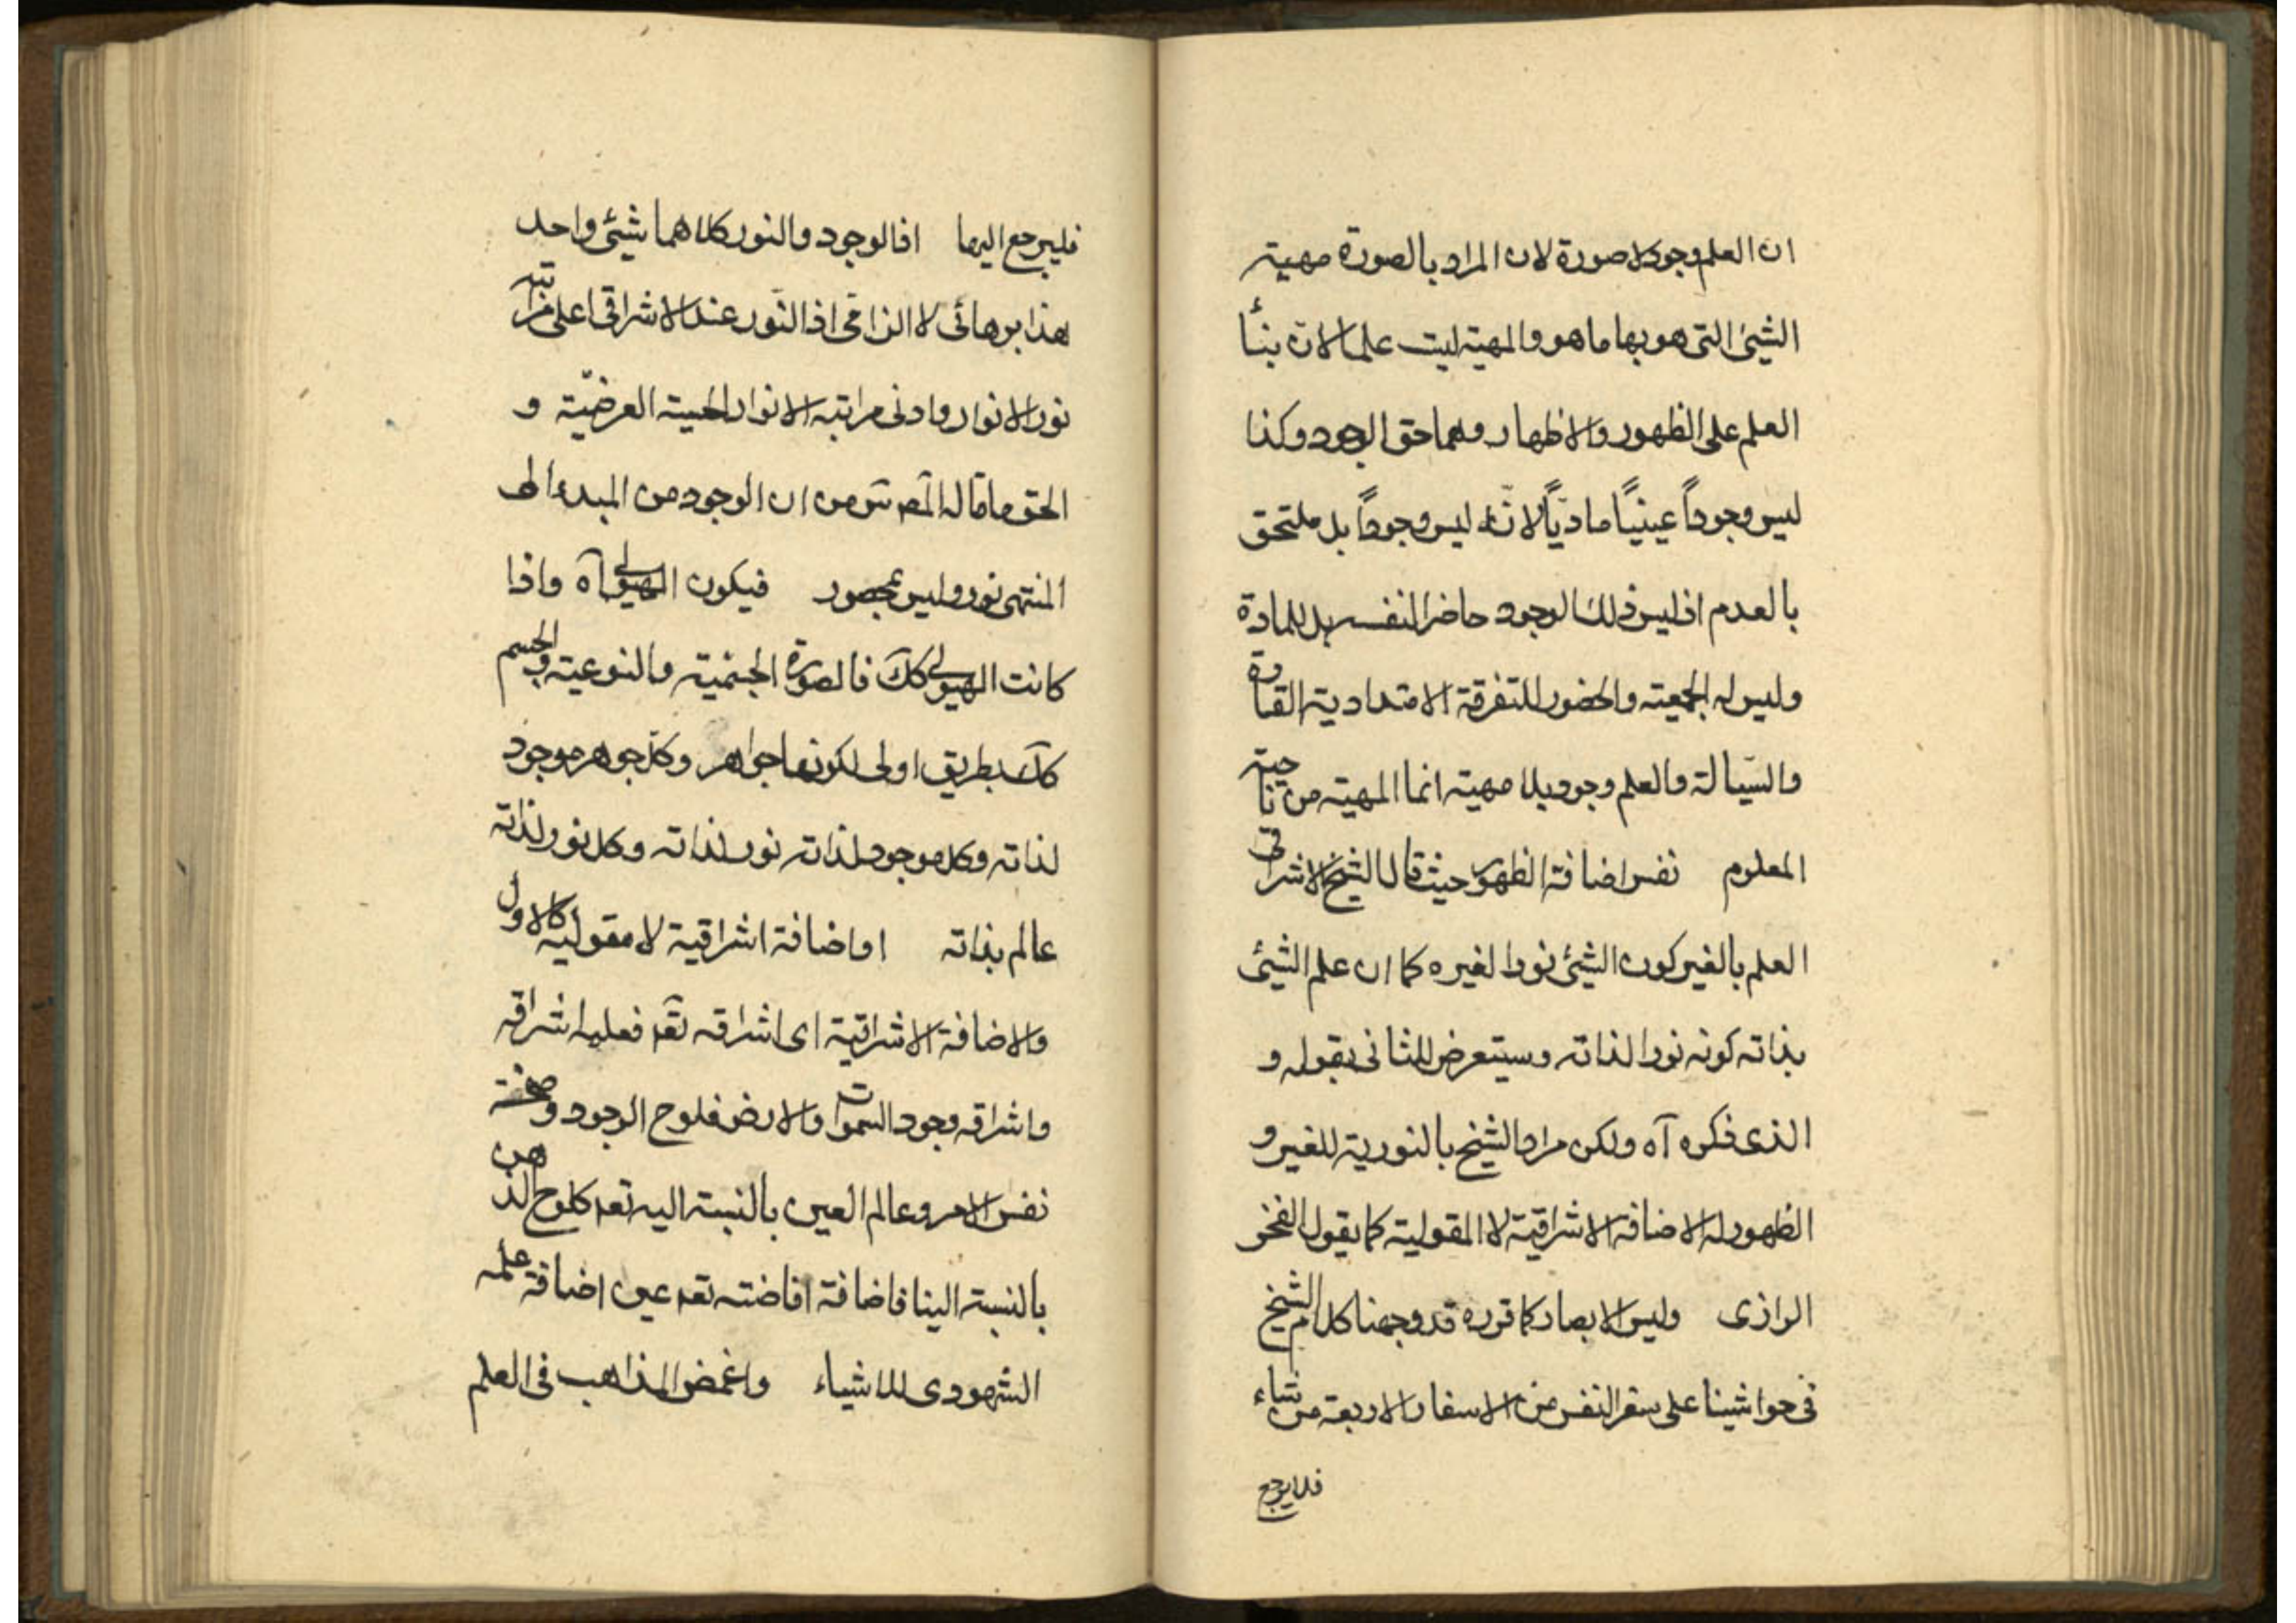 ان العلم وجود لا صورة لان المراد بالصورة مهية
الشيئ التى هو بها ما هو والمهية ليت علما لان بنأً
العلم على الظهور والاظهار وهما حق الوجود وكذا
ليس وجوداً عينيّاً ماديّاً لانّه ليس وجوداً بل ملتحق
بالعدم اذ ليس ذلك الوجود حاضرا لنفسه بل للمادة
وليس له الجمعيته والحضور للتفرقة الامتدادية القارة
والسّيالة والعلم وجود بلا مهية انما المهية من ناحية
المعلوم نفس اضافة الظهور حيث قال الشيخ الاشراقى
العلم بالغير كون الشيئ نورا لغيره كما ان علم الشيئ
بذاته كونه نورا لذاته وسيتعرض للثانى بقوله و
الذى ذكره آه ولكن مراد الشيخ بالنورية للغير و
الظهور له الاضافة الاشراقية لا المقولية كما يقول الفخر
الرازى وليس الابصار كما قرره قد وجهنا كلام الشيخ
فى حواشينا على سفر النفس من الاسفار الاربعة من شاء
فلايرجع
فليرجع اليها اذ الوجود والنور كلاهما شيئ واحد
هذا برهانى لا الزامى اذ النّور عند الاشراقى اعلى مراتبه
نور الانوار وادنى مراتبه الانوار الحسية العرضيّة و
الحق ما قاله المص من ان الوجود من المبدء الى
المنتهى نور وليس بمحصور فيكون الهيولى آه واذا
كانت الهيولى كك فالصورة الجسمية والنوعية والجسم
كك بطريق اولى لكونها جواهر وكل جوهر موجود
لذاته وكل موجود لذاته نور لذاته وكل نور لذاته
عالم بذاته او اضافة اشراقية لا مقولية كالاول
والاضافة الاشراقية اى اشراقه تعه فعليه اشراقه
واشراقه وجود السموات والارض فلوح الوجود وصفحة
نفس الامر وعالم العين بالنسبة اليه تعه كلوح الذهن
بالنسبة الينا فاضافة افاضته تعه عين اضافة علمه
الشهودى للاشياء واغمض المذاهب فى العلم